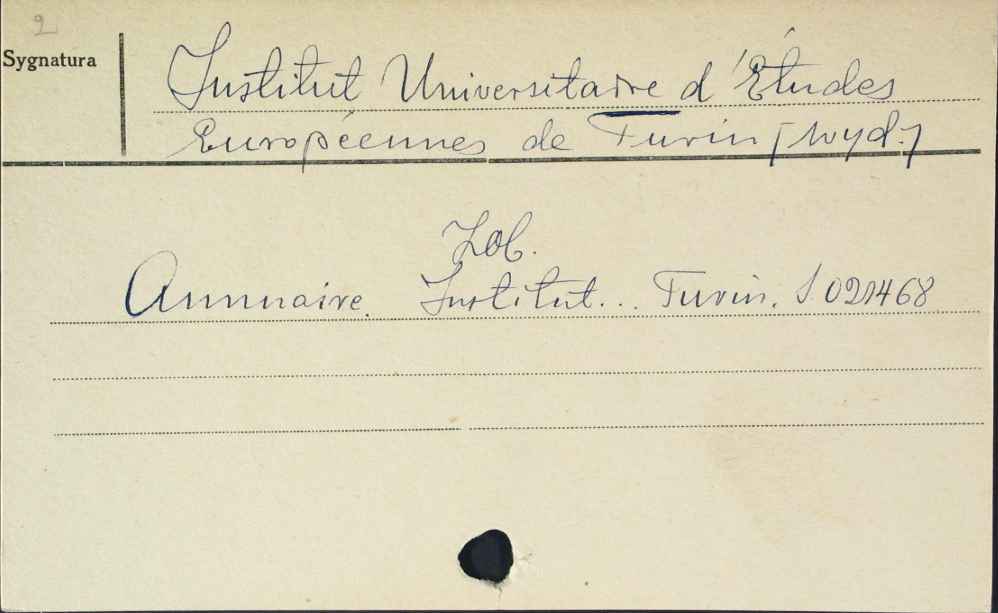 2
Sygnatura
Institut Universitaire d'Études
Européennes de Turin [wyd.]
Zob.
Annuaire. Institut... Turin. S. 021468